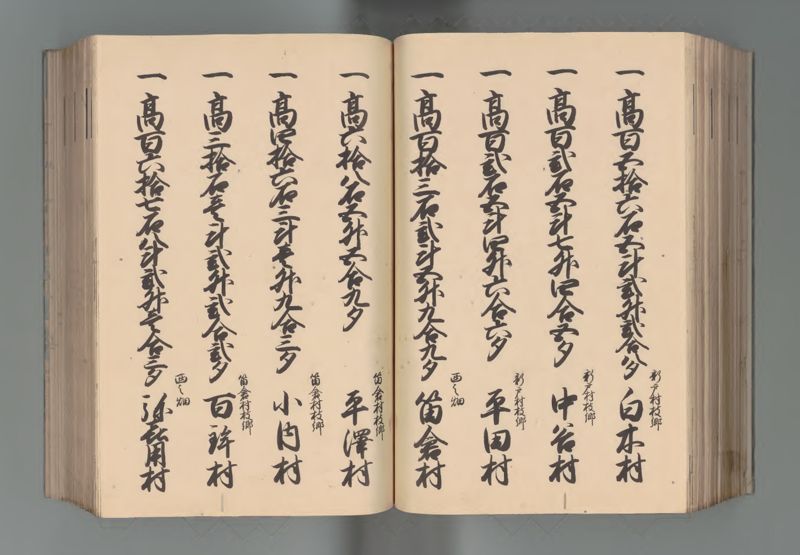 一 高百五拾六石五斗弐升弐合夕 新戸村枝郷 白木村
一 高百弐石五斗七升四合五夕 新戸村枝郷 中谷村
一 高百弐石壱斗四升六合六夕 新戸村枝郷 平田村
一 高百拾三石弐斗五升九合九夕 西之畑 笛倉村
一 高六拾八石五升五合九夕 笛倉村枝郷 平澤村
一 高四拾六石三斗壱升九合三夕 笛倉村枝郷 小内村
一 高三拾石壱斗弐升弐合弐夕 笛倉村枝郷 百鉾村
一 高百六拾七石八斗弐升壱合三夕 西之畑 弥喜用村